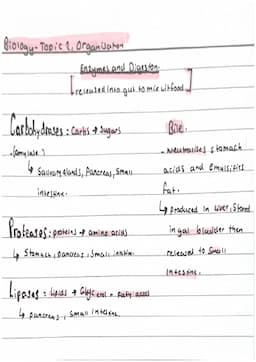 Biology - Topic 2, Organisation
Enzymes and Digestion
[released into gut to mix w/ food]
Carbohydrases: Carbs → Sugars
(amylase)
↳ Salivary glands, Pancreas, Small
intestine.
Proteases: proteins → amino acids
↳ Stomach, pancreas, Small intestine.
Lipases: Lipids → Glycerol + fatty acids
↳ pancreas, small intestine.
Bile.
- Neutralises stomach
acids and emulsifies
fat.
↳ produced in liver, stored
in gall bladder then
released to small
intestine.